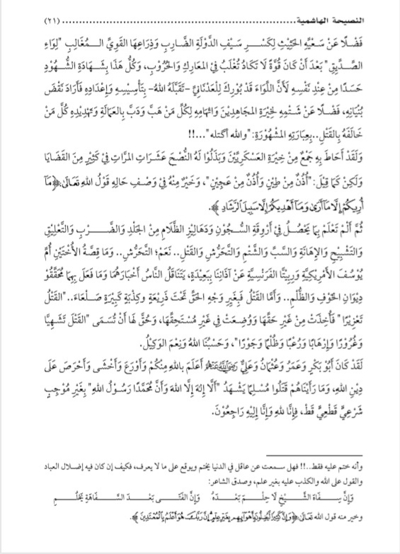 النصيحة الهاشمية (٢١)
فَضْلًا عَنْ سَعْيِهِ الْحَثِيثِ لِكَسْرِ سَيْفِ الدَّوْلَةِ الضَّارِبِ وَذِرَاعِهَا الْقَوِيِّ الْمُغَالِبِ "لِوَاءِ
الصِّدِّيقِ" بَعْدَ أَنْ كَانَ قُوَّةً لَا تَكَادُ تُغْلَبُ فِي الْمَعَارِكِ وَالْحُرُوبِ، وَكُلُّ هَذَا بِشَهَادَةِ الشُّهُودِ
حَسَدًا مِنْ عِنْدِ نَفْسِهِ لِأَنَّ اللِّوَاءَ قَدْ يُورَّثُ لِلْعَدْنَانِيِّ -تَقَبَّلَهُ اللهُ- بِتَأْسِيسِهِ وَإِعْدَادِهِ فَأَرَادَ نَقْضَ
بُنْيَانِهِ، فَضْلًا عَنْ شَتْمِهِ لِخِيرَةِ الْمُجَاهِدِينَ وَاتِّهَامِهِ لِكُلِّ مَنْ هَبَّ وَدَبَّ بِالْعَمَالَةِ وَتَهْدِيدِهِ كُلَّ مَنْ
خَالَفَهُ بِالْقَتْلِ..بِعِبَارَتِهِ الْمَشْهُورَةِ: "والله أكتله"...!!
وَلَقَدْ أَحَاطَ بِهِ جَمْعٌ مِنْ خِيرَةِ الْعَسْكَرِيِّينَ وَبَذَلُوا لَهُ النُّصْحَ عَشَرَاتِ الْمَرَّاتِ فِي كَثِيرٍ مِنَ الْقَضَايَا
وَلَكِنْ كَمَا قِيلَ: "أُذُنٌ مِنْ طِينٍ وَأُذُنٌ مِنْ عَجِينٍ"، وَخَيْرٌ مِنْهُ فِي وَصْفِ حَالِهِ قَوْلُ اللهِ تَعَالَى: ﴿مَآ
أُرِيكُمْ إِلَّا مَآ أَرَىٰ وَمَآ أَهْدِيكُمْ إِلَّا سَبِيلَ ٱلرَّشَادِ﴾.
ثُمَّ أَلَمْ تَعْلَمْ بِمَا يَحْصُلُ فِي أَرْوِقَةِ السُّجُونِ وَدَهَالِيزِ الظَّلَامِ مِنَ الْجَلْدِ وَالضَّرْبِ وَالتَّعْلِيقِ
وَالتَّشْبِيحِ وَالْإِهَانَةِ وَالسَّبِّ وَالشَّتْمِ وَالتَّحَرُّشِ وَالْقَتْلِ.. نَعَمْ؛ التَّحَرُّشِ.. وَمَا قِصَّةُ الْأُخْتَيْنِ أُمِّ
يُوسُفَ الْأَمْرِيكِيَّةِ وَرِيتَّا الْفَرَنْسِيَّةِ عَنْ آذَانِنَا بِبَعِيدَةٍ، يَتَنَاقَلُ النَّاسُ أَخْبَارَهُمَا وَمَا فَعَلَ بِهِمَا مُحَقِّقُو
دِيوَانِ الْخَوْفِ وَالظُّلْمِ.. وَأَمَّا الْقَتْلُ فَبِغَيْرِ وَجْهِ الْحَقِّ تَحْتَ ذَرِيعَةٍ وَكِذْبَةٍ كَبِيرَةٍ صَلْعَاءَ.."الْقَتْلُ
تَعْزِيرًا" فَأُخِذَتْ مِنْ غَيْرِ حَقِّهَا وَوُضِعَتْ فِي غَيْرِ مُسْتَحِقِّهَا، وَحُقَّ لَهَا أَنْ تُسَمَى "الْقَتْلَ تَشَهِّيًا
وَغُرُورًا وَإِرْهَابًا وَرُعْبًا وَظُلْمًا وَجَوْرًا"، وَحَسْبُنَا اللهُ وَنِعْمَ الْوَكِيلُ.
لَقَدْ كَانَ أَبُو بَكْرٍ وَعُمَرُ وَعُثْمَانُ وَعَلِيٌّ أَعْلَمَ بِاللهِ مِنْكُمْ وَأَوْرَعَ وَأَخْشَى وَأَحْرَصَ عَلَى
دِينِ اللهِ، وَمَا رَأَيْنَاهُمْ قَتَلُوا مُسْلِمًا يَشْهَدُ "أَلَّا إِلَهَ إِلَّا اللهُ وَأَنَّ مُحَمَّدًا رَسُولُ اللهِ" بِغَيْرِ مُوجِبٍ
شَرْعِيٍّ قَطْعِيٍّ قَطُّ، فَإِنَّا لِلهِ وَإِنَّا إِلَيْهِ رَاجِعُونَ.
وأنه ختم عليه فقط..!! فهل سمعت عن عاقل في الدنيا يختم ويوقع على ما لا يعرف، فكيف إن كان فيه إضلال العباد
والقول على الله والكذب عليه بغير علم، وصدق الشاعر:
وَإِنَّ سِفَاهَ الشَّيْخِ لَا حِلْمَ بَعْدَهُ وَإِنَّ الْفَتَى بَعْدَ السَّفَاهَةِ يَحْلُمِ
وخير منه قول الله تعالى: ﴿وَإِنَّ كَثِيرًا لَّيُضِلُّونَ بِأَهْوَآئِهِم بِغَيْرِ عِلْمٍ إِنَّ رَبَّكَ هُوَ أَعْلَمُ بِٱلْمُعْتَدِينَ﴾.